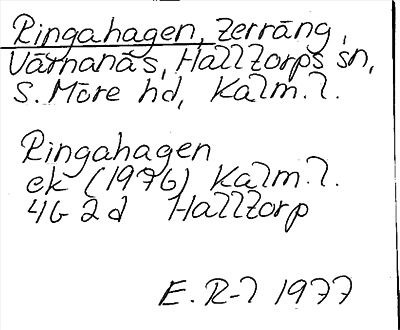 Ringahagen, terräng,
Värnanäs, Halltorps sn,
S. Möre hd, Kalm. l.
Ringahagen
ek (1976) Kalm. l.
4G 2d Halltorp
E. R-l 1977